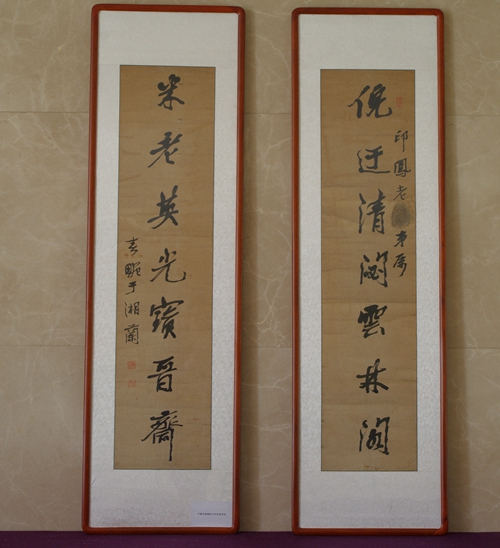 倪迂清閟雲林閣
邱鳳老弟屬
米老英光寶晉齋
畹于湘蘭